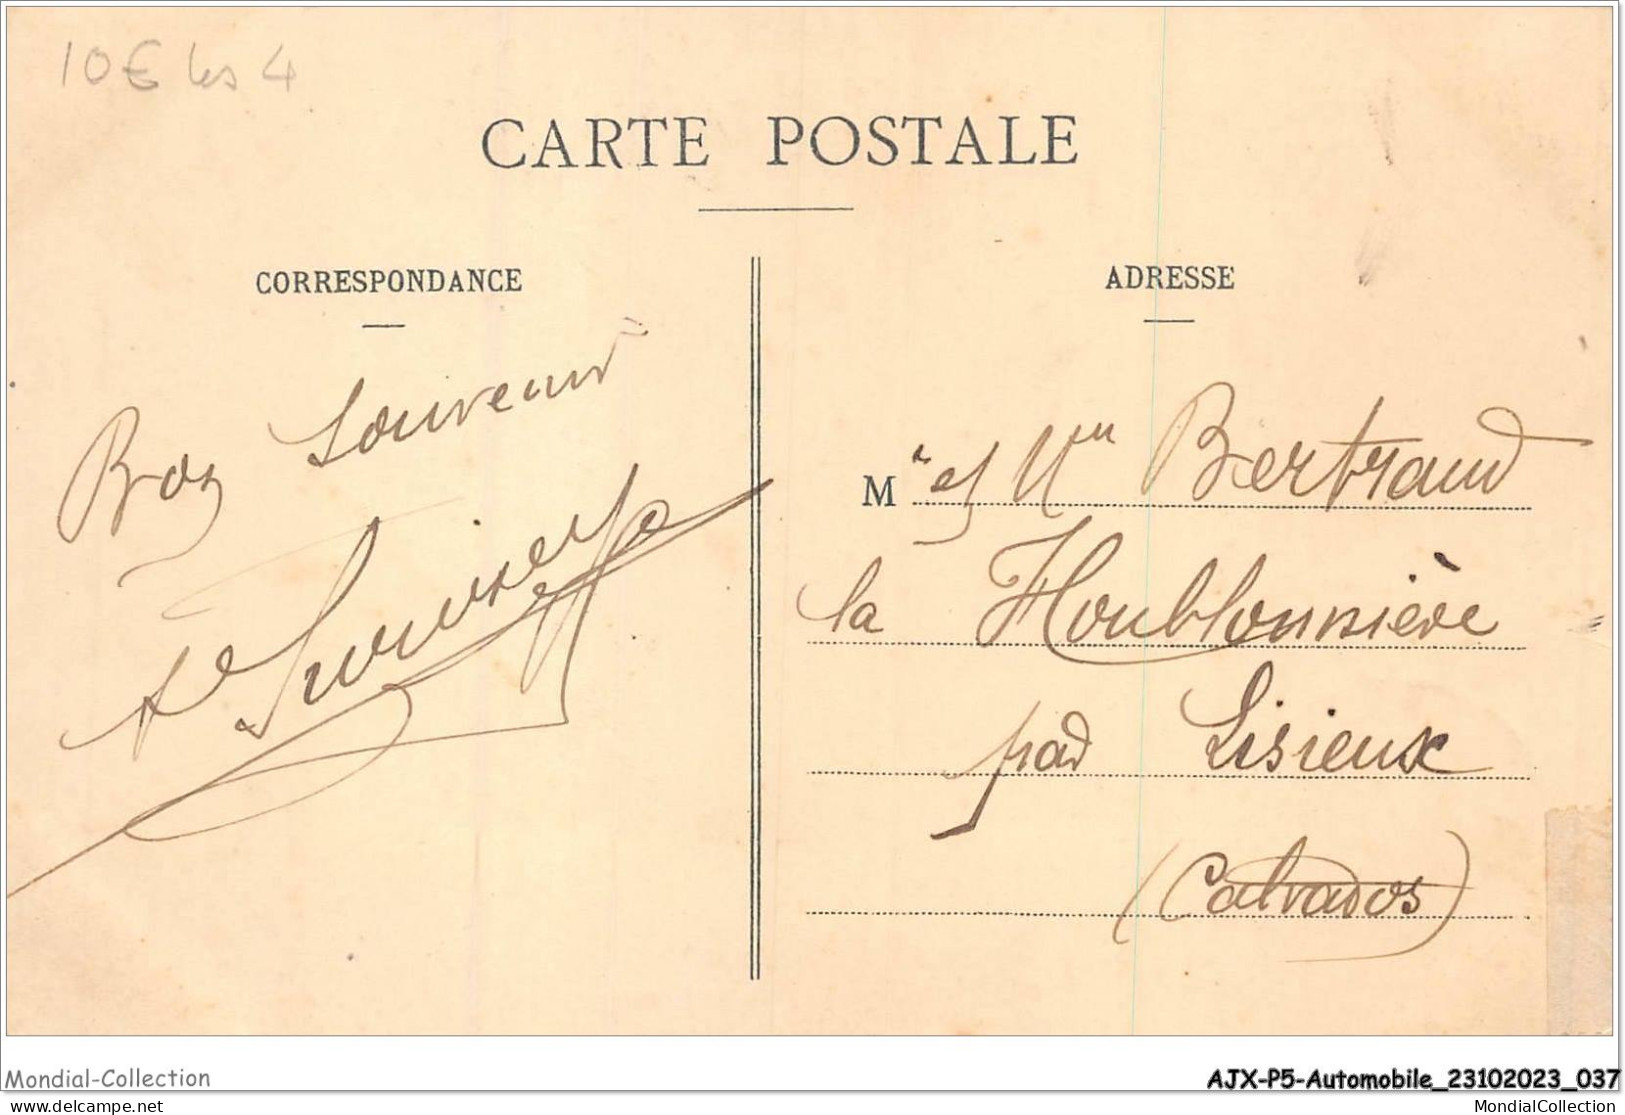 10€ les 4
CARTE POSTALE
CORRESPONDANCE
ADRESSE
Bon Souvenir
M r et Mme Bertrand
la Houblonnière
par Lisieux
(Calvados)
Mondial-Collection
AJX-P5-Automobile_23102023_037
www.delcampe.net
MondialCollection